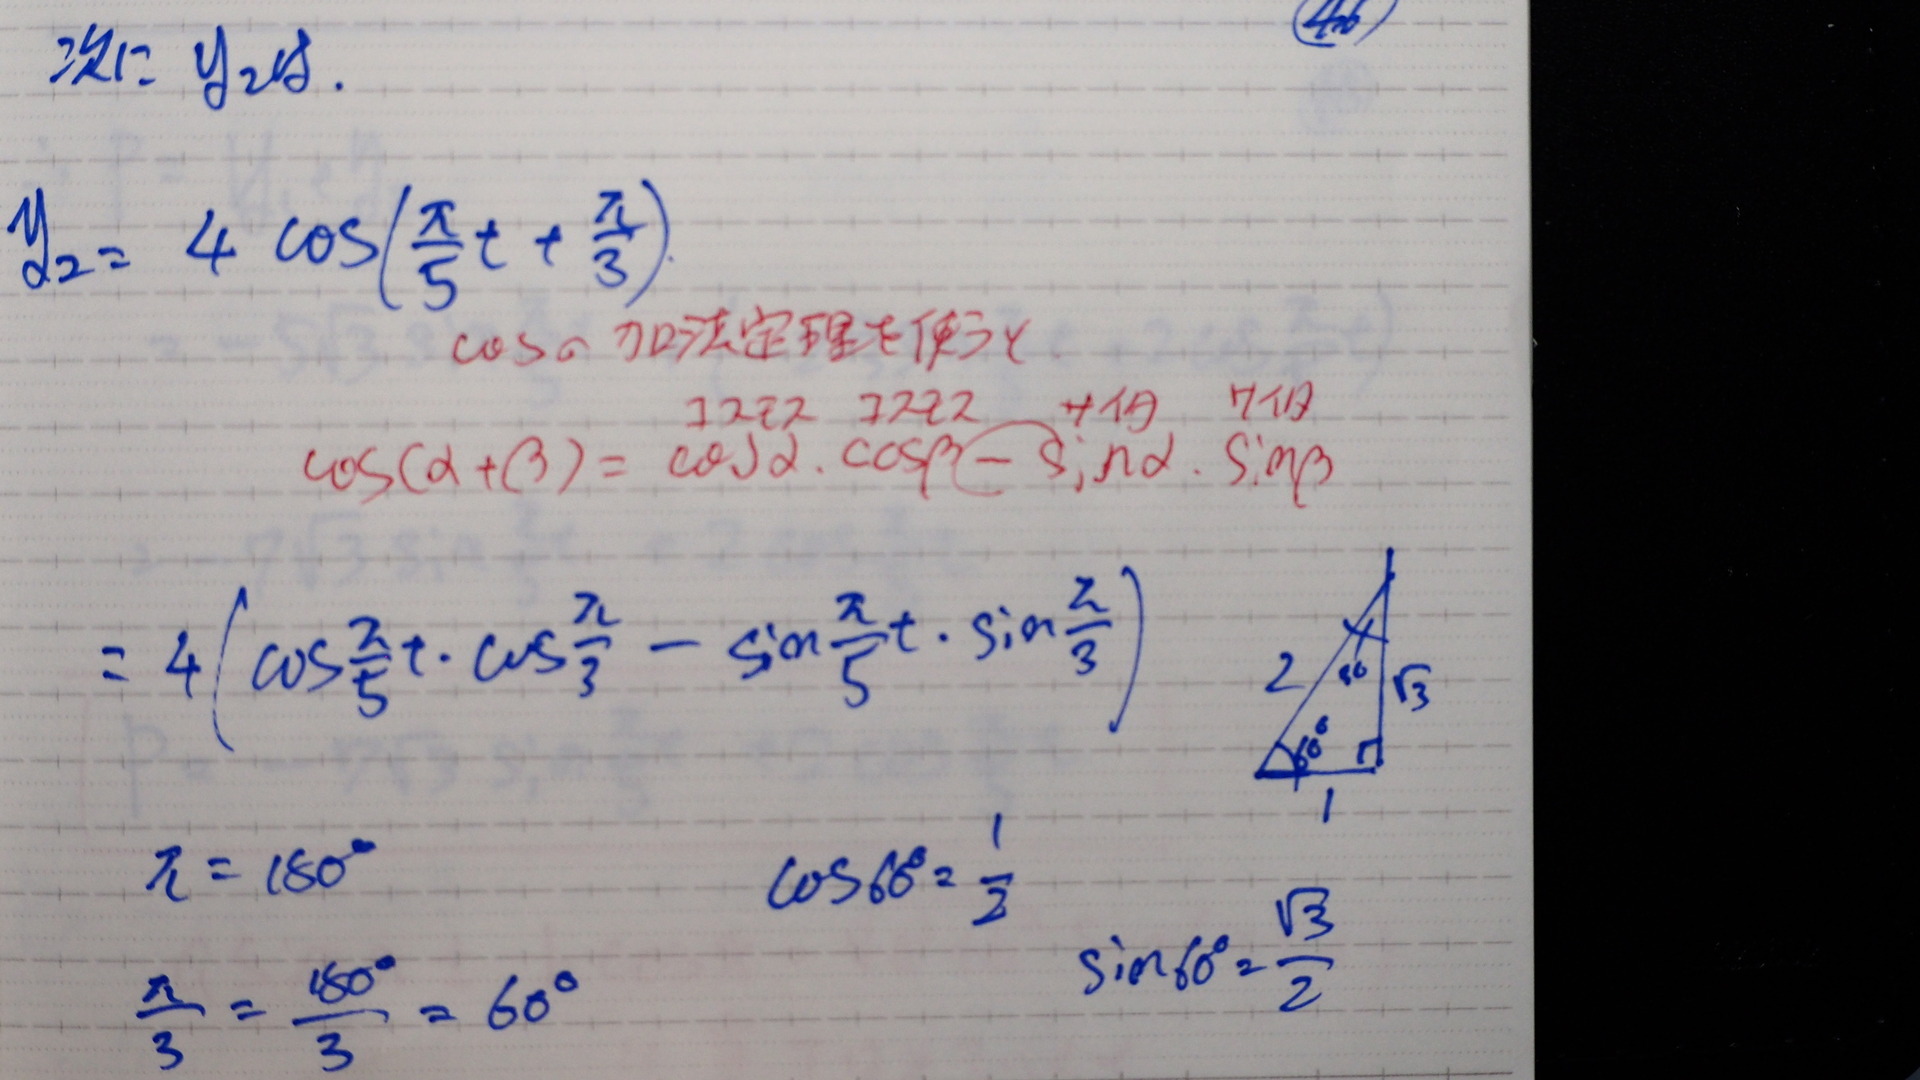 次に y₂は.
y₂ = 4 cos(π/5 t + π/3).
cosの加法定理を使うと
コスコス コスコス サイン サイン
cos(α+β) = cosα・cosβ − sinα・sinβ
= 4(cos π/5 t・cos π/3 − sin π/5 t・sin π/3)
2 √3
60°
1
π = 180°
cos60° = 1/2
sin60° = √3/2
π/3 = 180°/3 = 60°